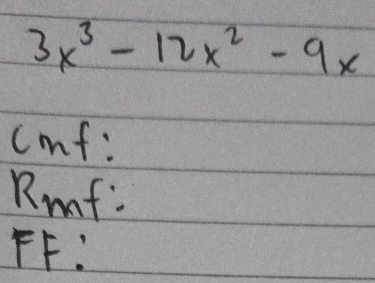 3x³ - 12x² - 9x
Cmf:
Rmf:
FF: